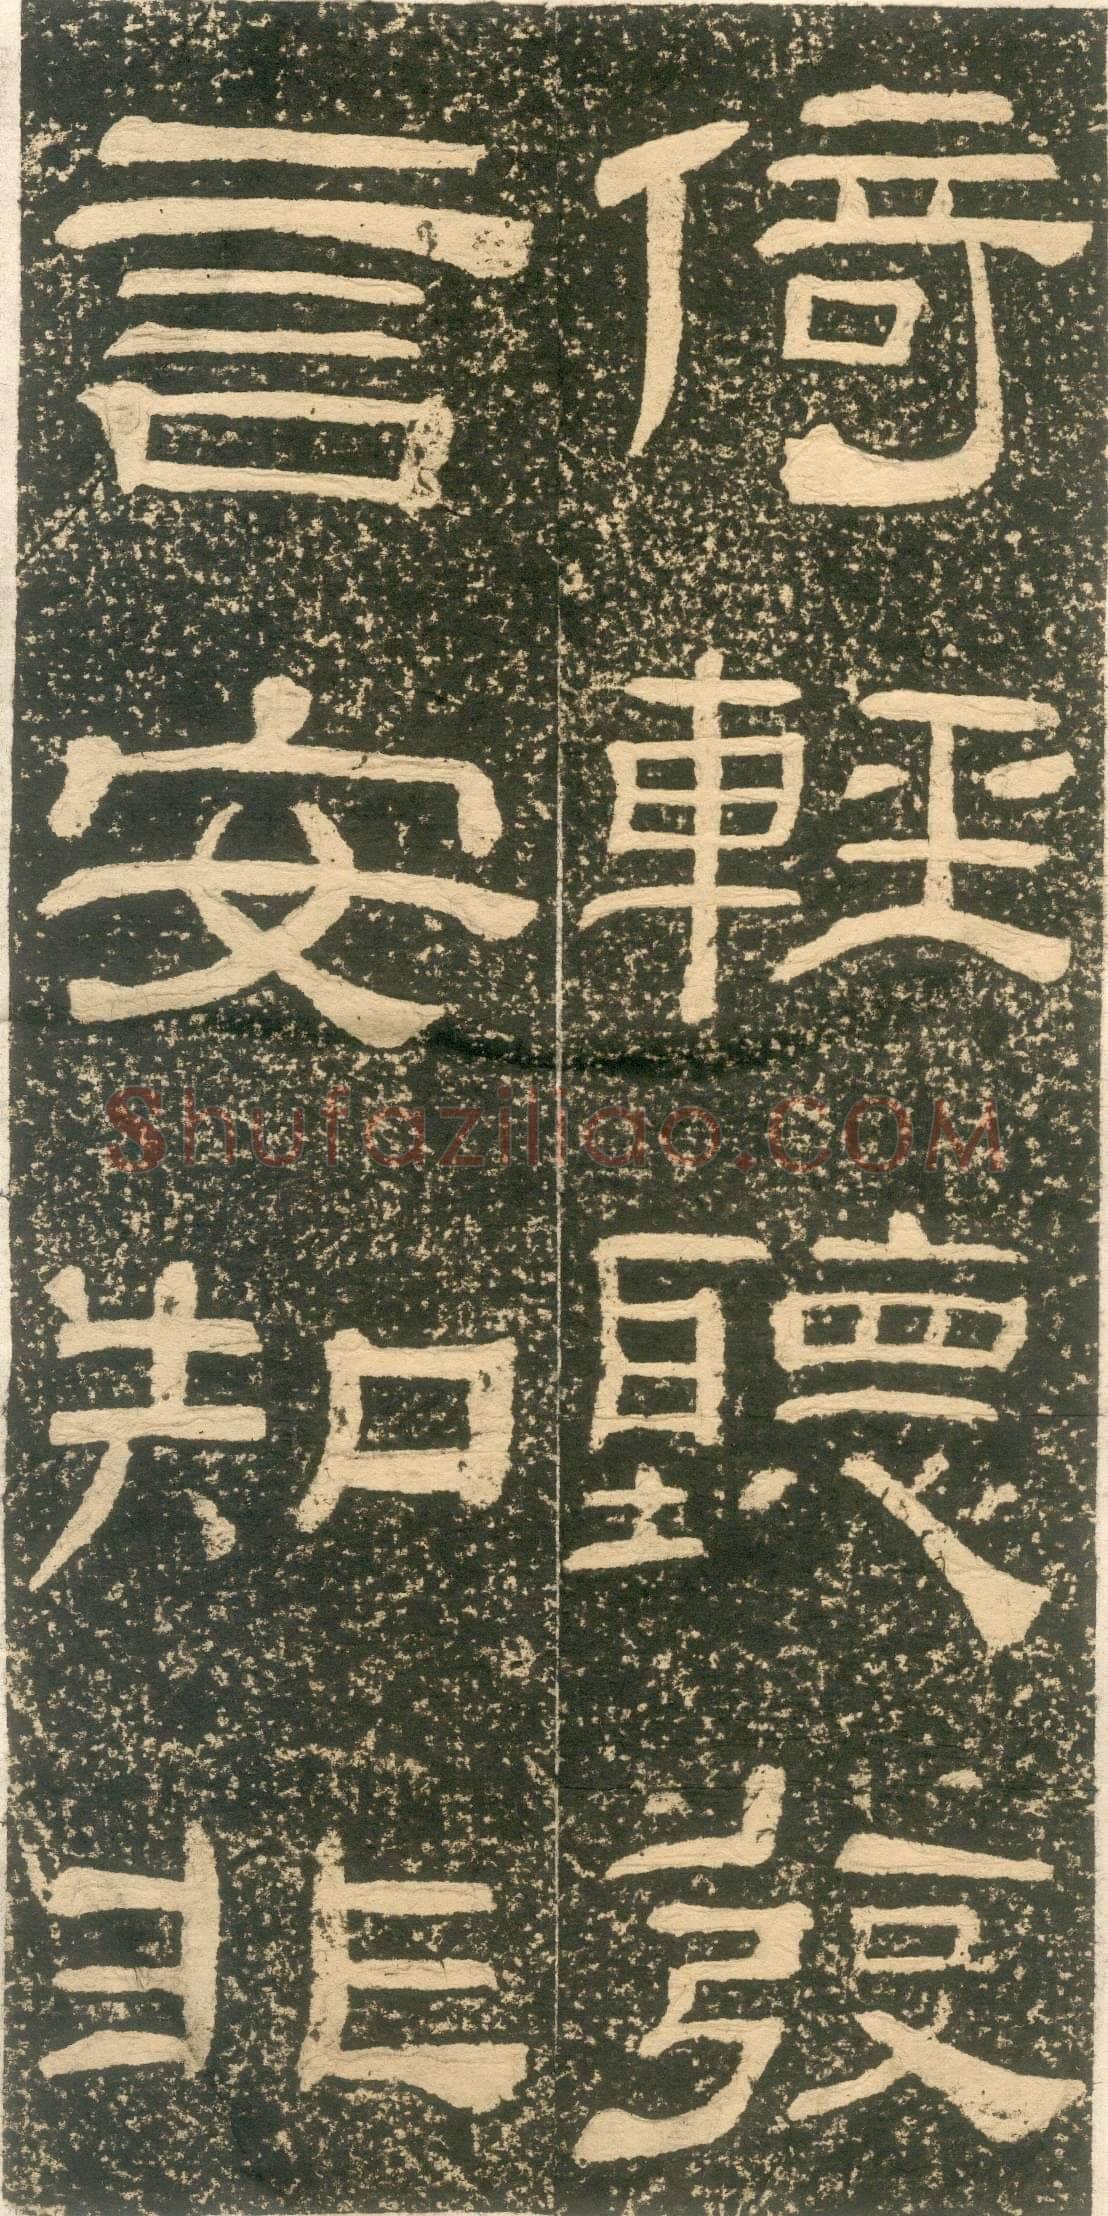 倚輕聽發
言安知非
Shufaziliao.COM